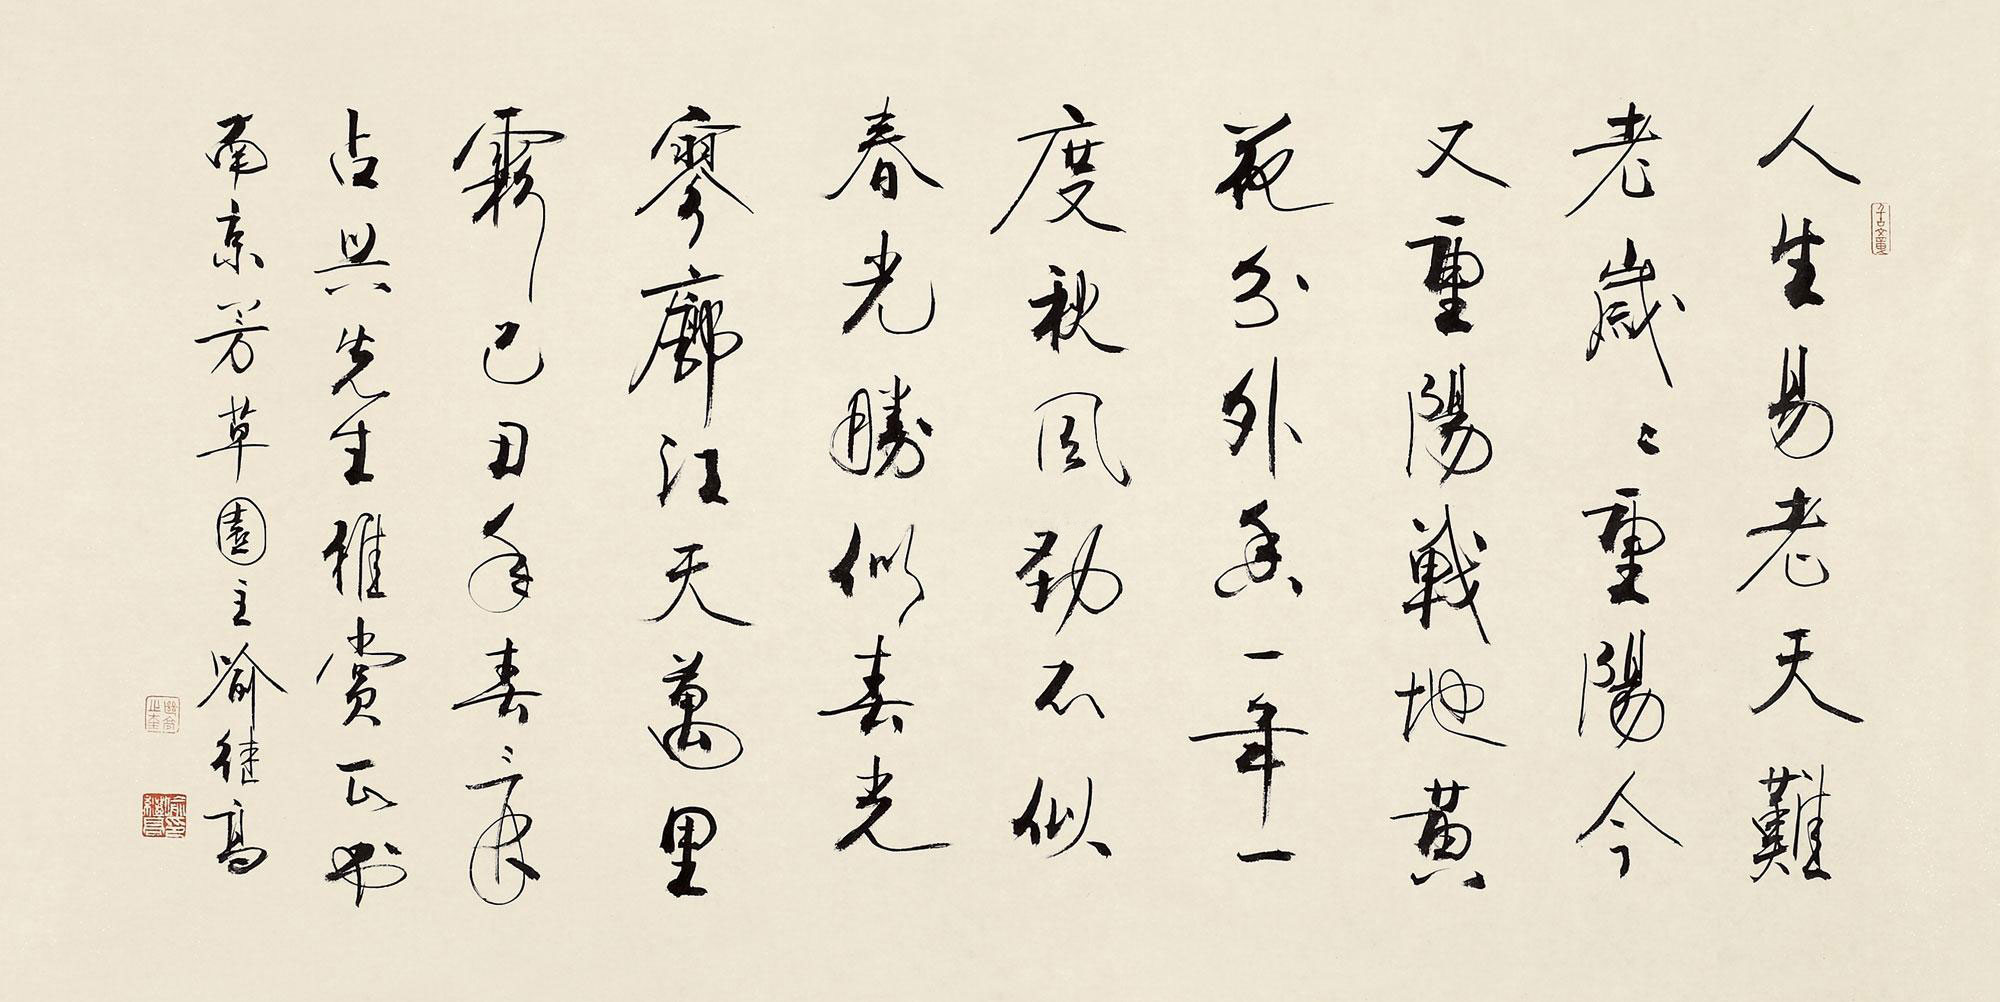 人生易老天難
老歲〻重陽今
又重陽戰地黃
花分外香一年一
度秋風勁不似
春光勝似春光
寥廓江天萬里
霜己丑年春之序
占興先生雅賞正书
南京芳草園主喻继高